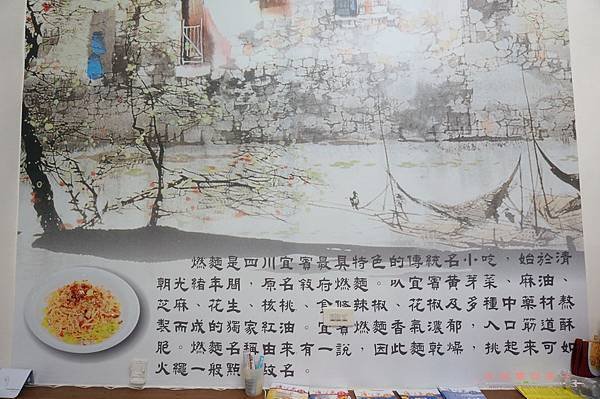 燃麵是四川宜賓最具特色的傳統名小吃，始於清
朝光緒年間，原名敍府燃麵。以宜賓黃芽菜、麻油、
芝麻、花生、核桃、食辣椒、花椒及多種中藥材熬
製而成的獨家紅油。宜賓燃麵香氣濃郁，入口筋道酥
脆。燃麵名稱由來有一說，因此麵乾燥，挑起來可如
火繩一般點名。